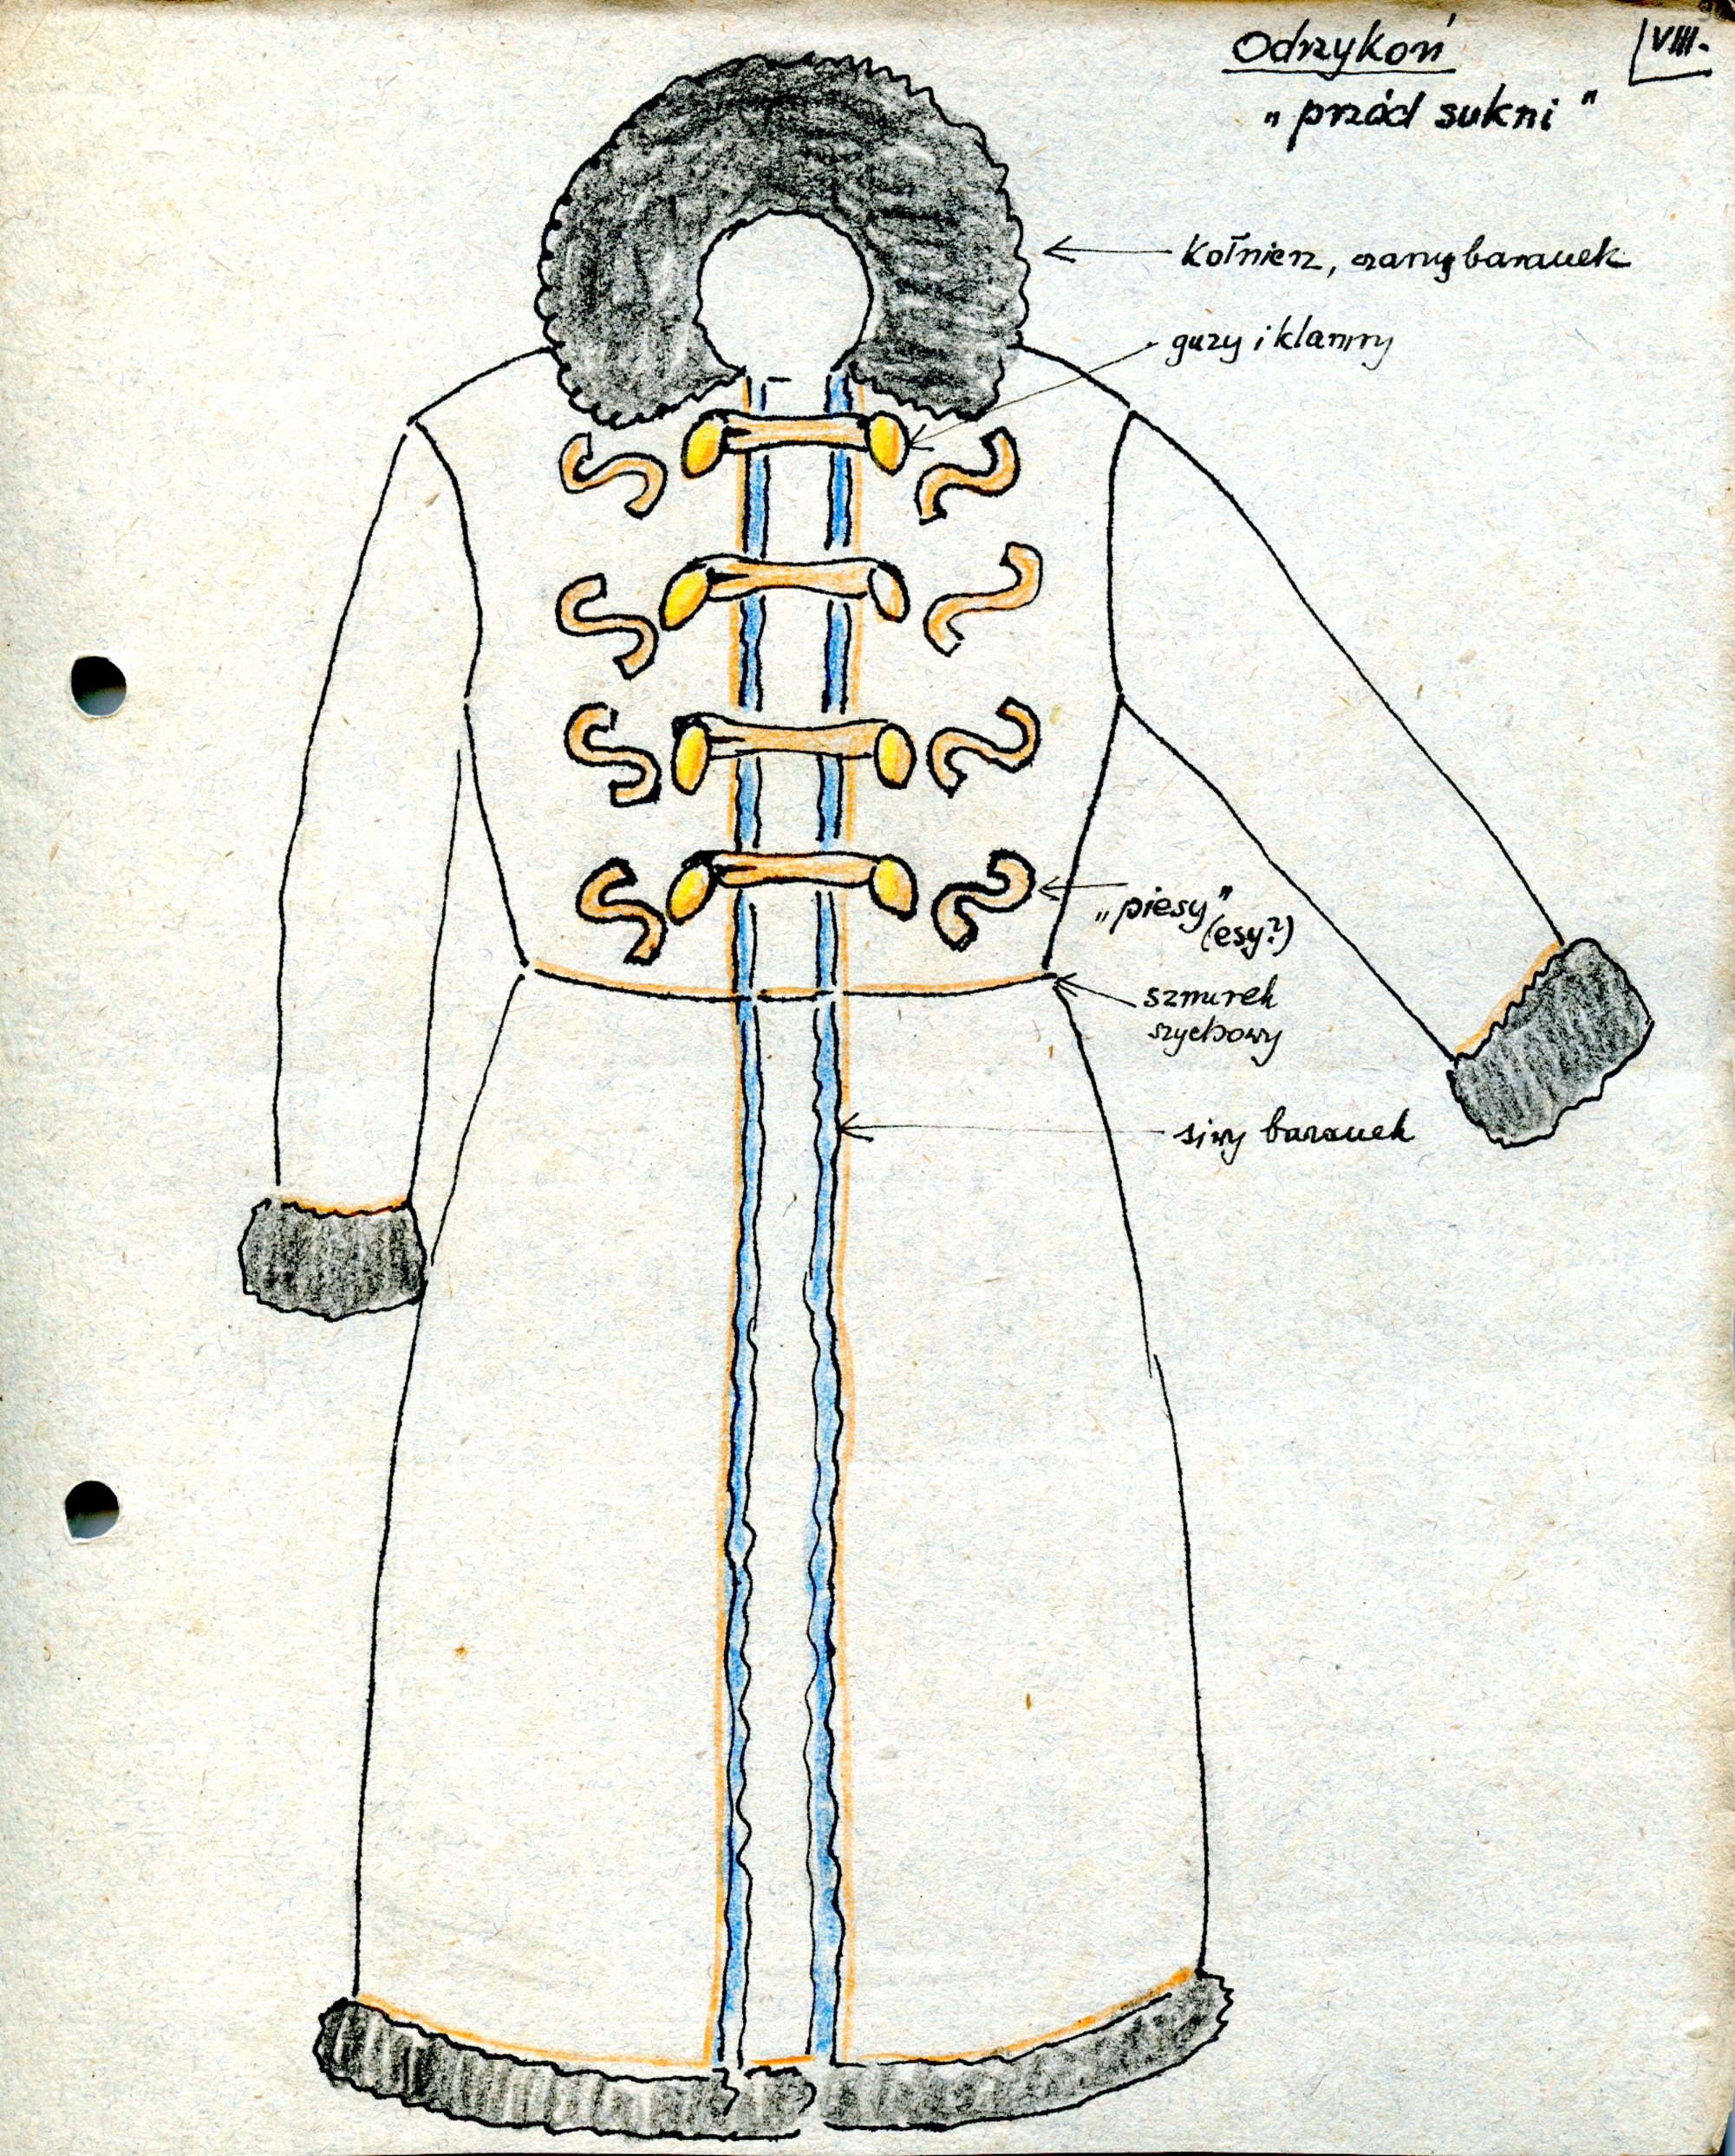 Odrzykoń
VIII.
„przód sukni”
kołnierz, czarny baranek
guzy i klamry
„piesy”
(esy?)
sznurek
szychowy
siwy baranek